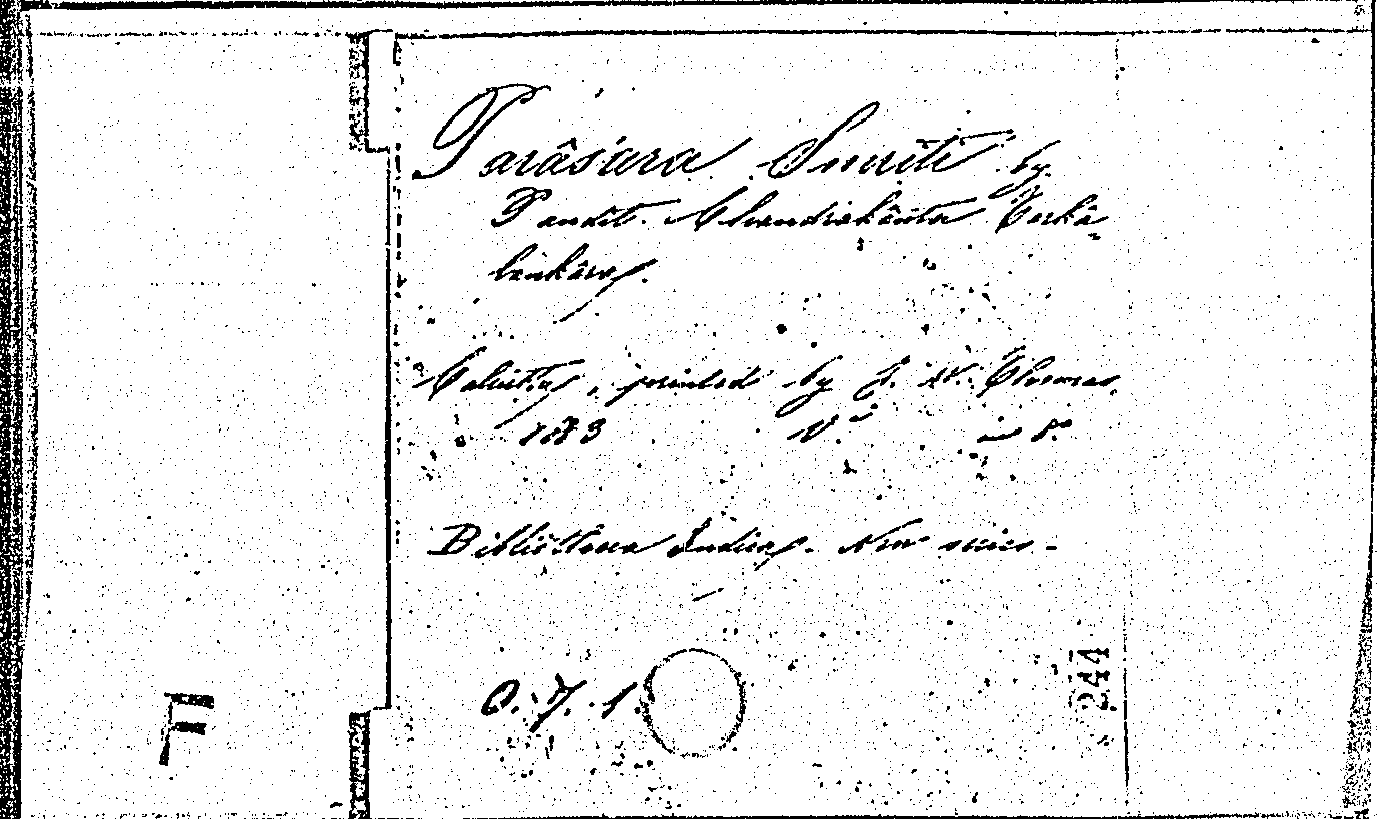 Parâs'ara Smriti by
Pandit Chandrakânta Tarkâ-
lankâra.
Calcutta, printed by J. W. Thomas,
1883 V.º in 8.º
Bibliotheca Indica. New series -
O. 7. 1
244
F